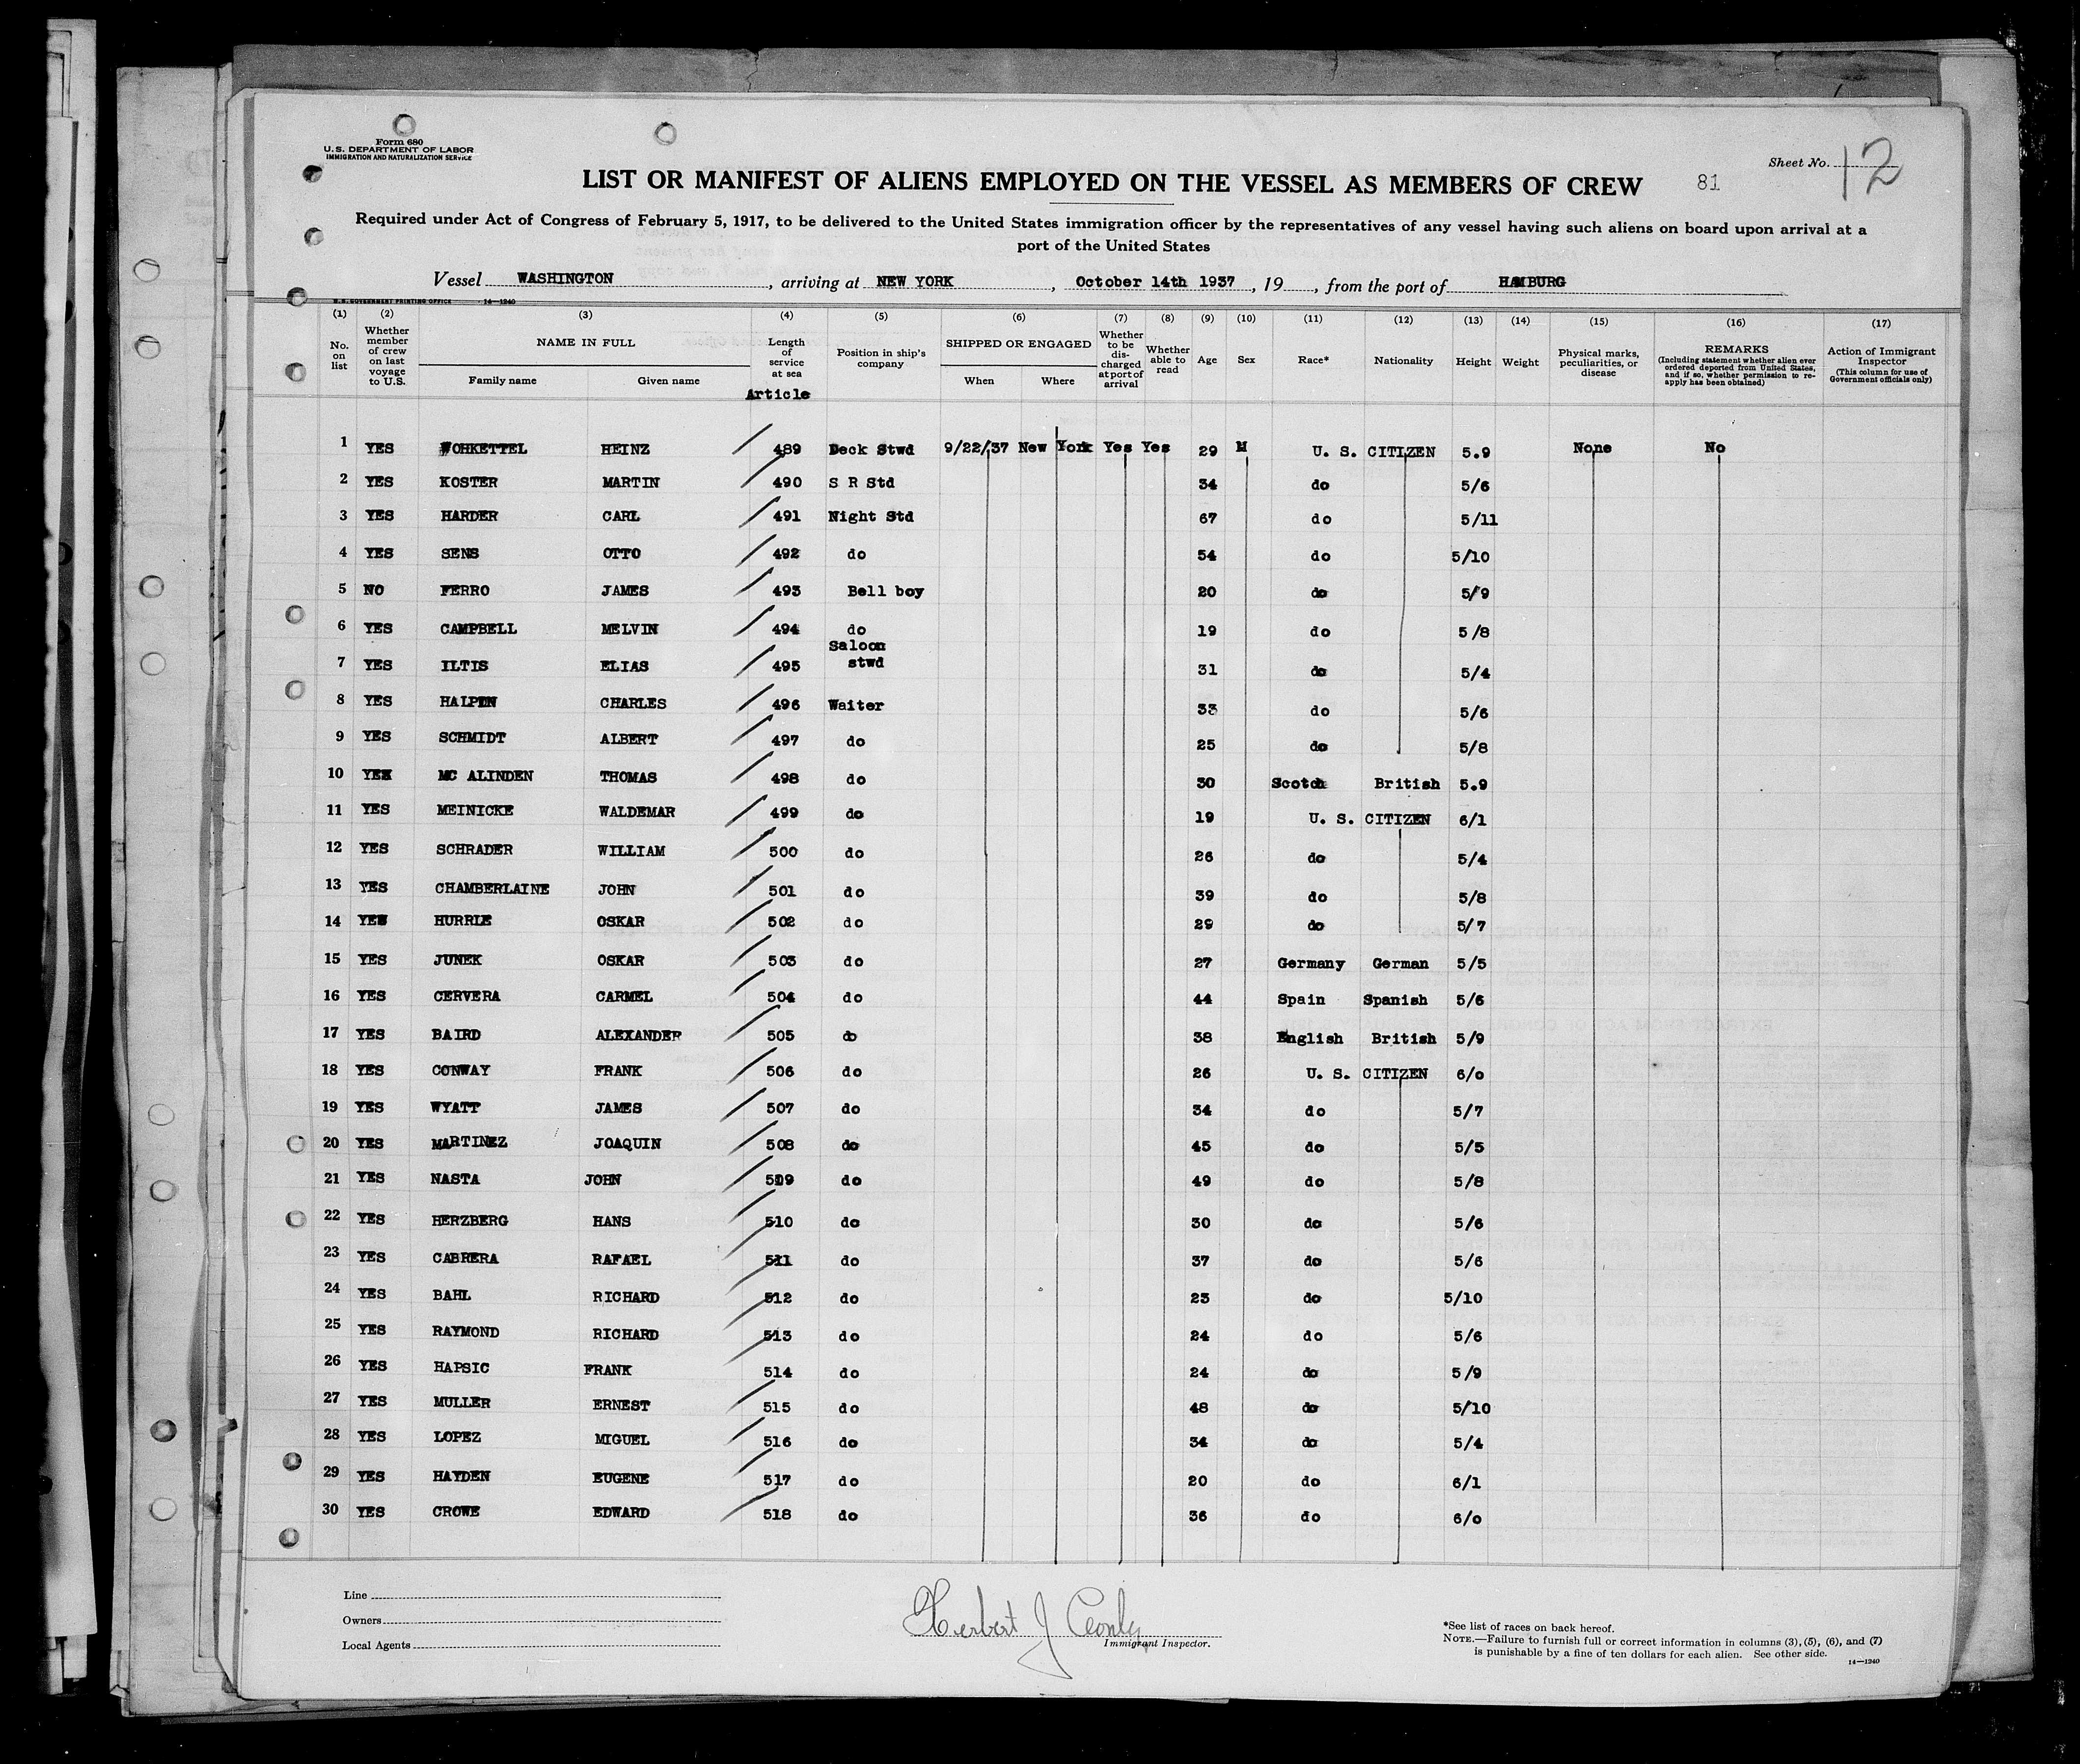 Form 680
U.S. DEPARTMENT OF LABOR
IMMIGRATION AND NATURALIZATION SERVICE
Sheet No. 12
LIST OR MANIFEST OF ALIENS EMPLOYED ON THE VESSEL AS MEMBERS OF CREW 81
Required under Act of Congress of February 5, 1917, to be delivered to the United States immigration officer by the representatives of any vessel having such aliens on board upon arrival at a
port of the United States
Vessel WASHINGTON, arriving at NEW YORK, October 14th 1937, 19, from the port of HAMBURG
U.S. GOVERNMENT PRINTING OFFICE 14—1240
(1) (2) (3) (4) (5) (6) (7) (8) (9) (10) (11) (12) (13) (14) (15) (16) (17)
No. on list
Whether member of crew on last voyage to U.S.
NAME IN FULL
Family name Given name
Length of service at sea
Article
Position in ship's company
SHIPPED OR ENGAGED
When Where
Whether to be discharged at port of arrival
Whether able to read
Age
Sex
Race*
Nationality
Height
Weight
Physical marks, peculiarities, or disease
REMARKS
(Including statement whether alien ever ordered deported from United States, and if so, whether permission to reapply has been obtained)
Action of Immigrant Inspector
(This column for use of Government officials only)
1 YES WOHKETTEL HEINZ 489 Deck Stwd 9/22/37 New York Yes Yes 29 M U. S. CITIZEN 5.9 None No
2 YES KOSTER MARTIN 490 S R Std 34 do 5/6
3 YES HARDER CARL 491 Night Std 67 do 5/11
4 YES SENS OTTO 492 do 54 do 5/10
5 NO FERRO JAMES 493 Bell boy 20 do 5/9
6 YES CAMPBELL MELVIN 494 do 19 do 5/8
7 YES ILTIS ELIAS 495 Saloon stwd 31 do 5/4
8 YES HALPEN CHARLES 496 Waiter 33 do 5/6
9 YES SCHMIDT ALBERT 497 do 25 do 5/8
10 YES MC ALINDEN THOMAS 498 do 30 Scotch British 5.9
11 YES MEINICKE WALDEMAR 499 do 19 U. S. CITIZEN 6/1
12 YES SCHRADER WILLIAM 500 do 26 do 5/4
13 YES CHAMBERLAINE JOHN 501 do 39 do 5/8
14 YES HURRLE OSKAR 502 do 29 do 5/7
15 YES JUNEK OSKAR 503 do 27 Germany German 5/5
16 YES CERVERA CARMEL 504 do 44 Spain Spanish 5/6
17 YES BAIRD ALEXANDER 505 do 38 English British 5/9
18 YES CONWAY FRANK 506 do 26 U. S. CITIZEN 6/o
19 YES WYATT JAMES 507 do 34 do 5/7
20 YES MARTINEZ JOAQUIN 508 do 45 do 5/5
21 YES NASTA JOHN 509 do 49 do 5/8
22 YES HERZBERG HANS 510 do 30 do 5/6
23 YES CABRERA RAFAEL 511 do 37 do 5/6
24 YES BAHL RICHARD 512 do 23 do 5/10
25 YES RAYMOND RICHARD 513 do 24 do 5/6
26 YES HAPSIC FRANK 514 do 24 do 5/9
27 YES MULLER ERNEST 515 do 48 do 5/10
28 YES LOPEZ MIGUEL 516 do 34 do 5/4
29 YES HAYDEN EUGENE 517 do 20 do 6/1
30 YES CROWE EDWARD 518 do 36 do 6/o
Line
Owners
Local Agents
Herbert J
Immigrant Inspector.
*See list of races on back hereof.
NOTE.—Failure to furnish full or correct information in columns (3), (5), (6), and (7)
is punishable by a fine of ten dollars for each alien. See other side.
14—1240